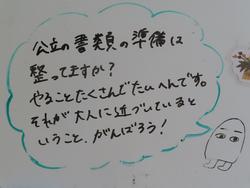 公立の書類の準備は
整ってますか?
やることたくさんでたいへんです。
それが大人に近づいていると
いうこと、がんばろう!